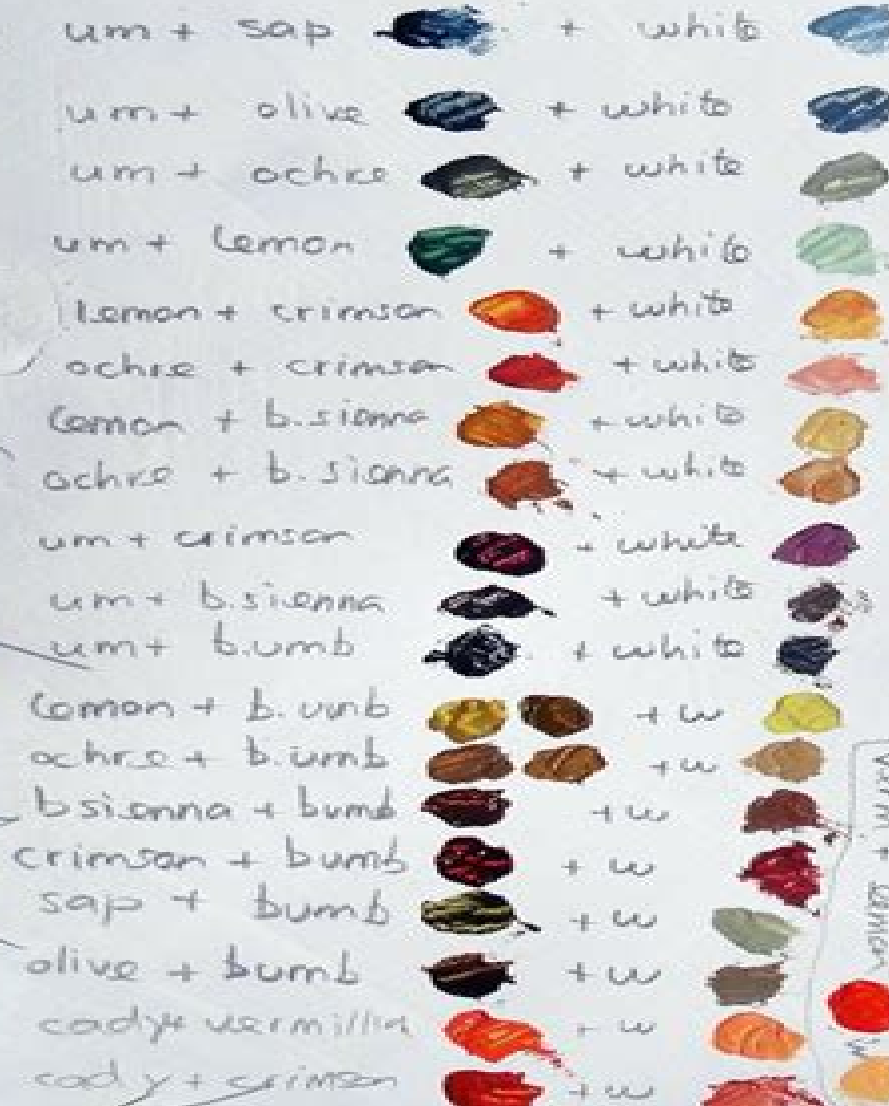 um + sap + white
um + olive + white
um + ochre + white
um + lemon + white
lemon + crimson + white
ochre + crimson + white
lemon + b.sienna + white
ochre + b.sienna + white
um + crimson + white
um + b.sienna + white
um + b.umb + white
lemon + b.umb + w
ochre + b.umb + w
bsienna + bumb + w
crimson + bumb + w
sap + bumb + w
olive + bumb + w
cady + vermillin + w
cad y + crimson + w
+ lemon